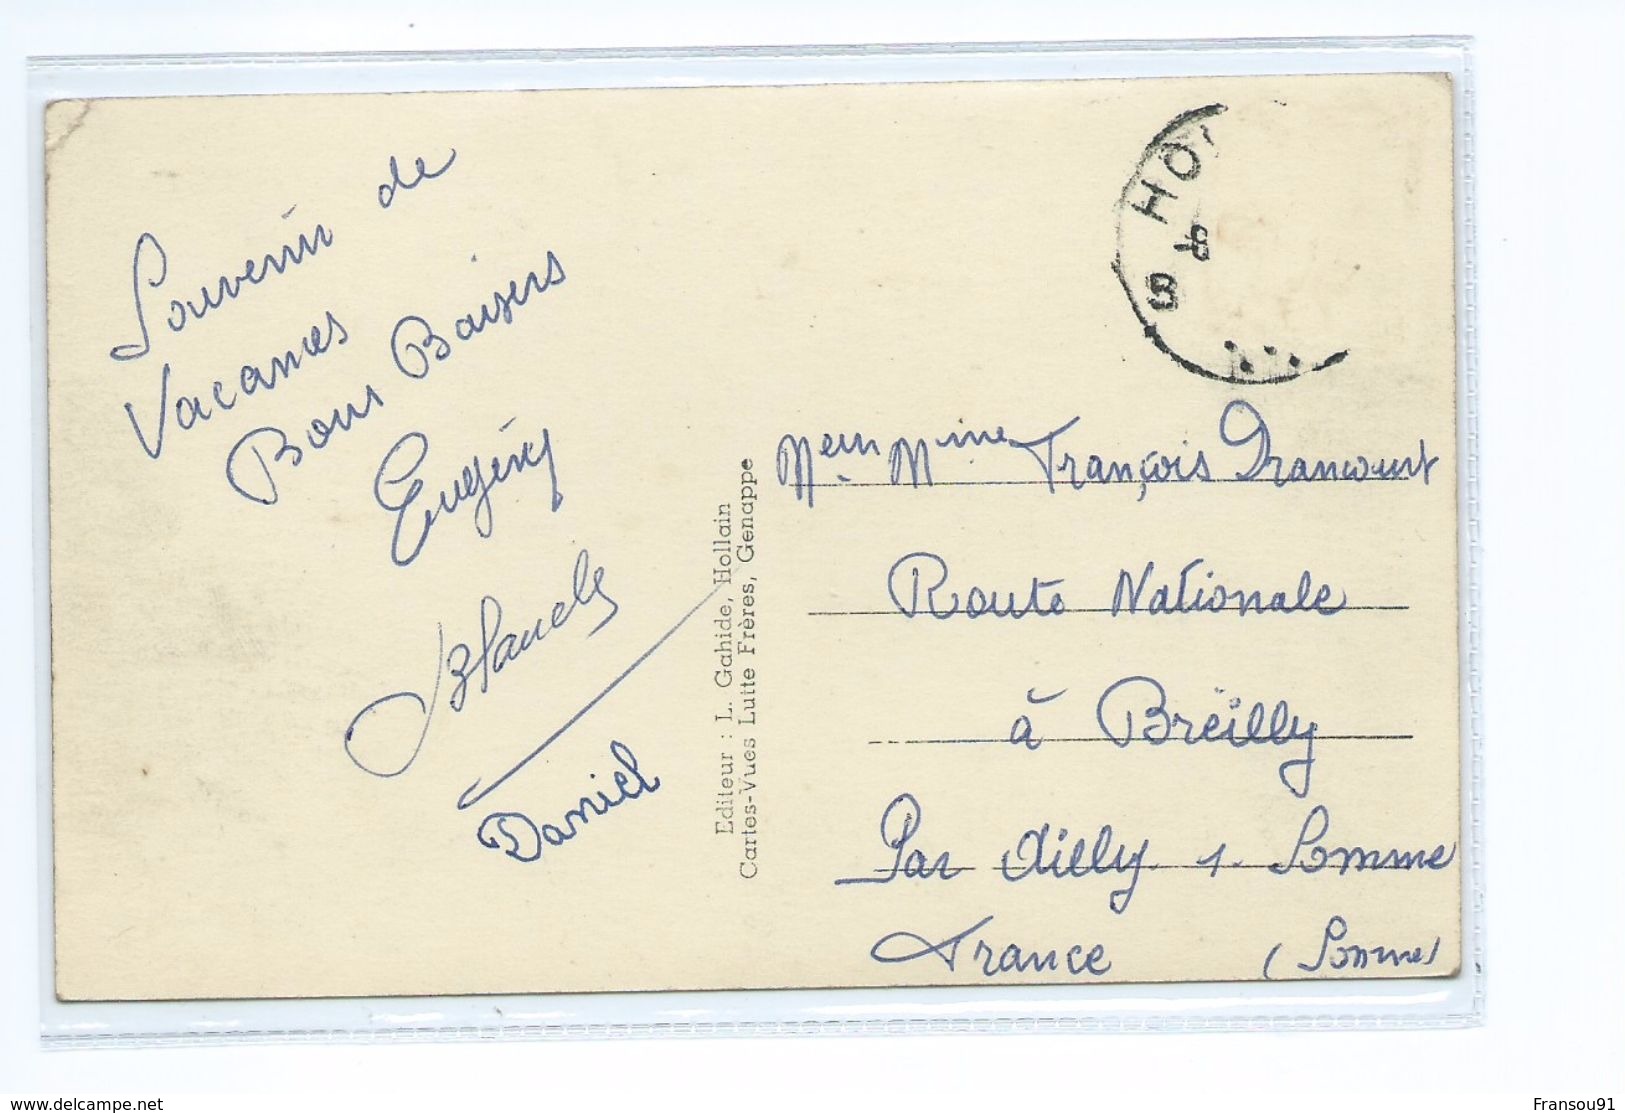 Souvenir de
Vacances
Bons Baisers
Eugény
Blanche
Daniel
Editeur : L. Gahide, Hollain
Cartes-Vues Lutte Frères, Genappe
HO
8
Meur Mme François Drancourt
Route Nationale
à Breilly
Par Ailly s. Somme
France (Somme)
www.delcampe.net
Fransou91